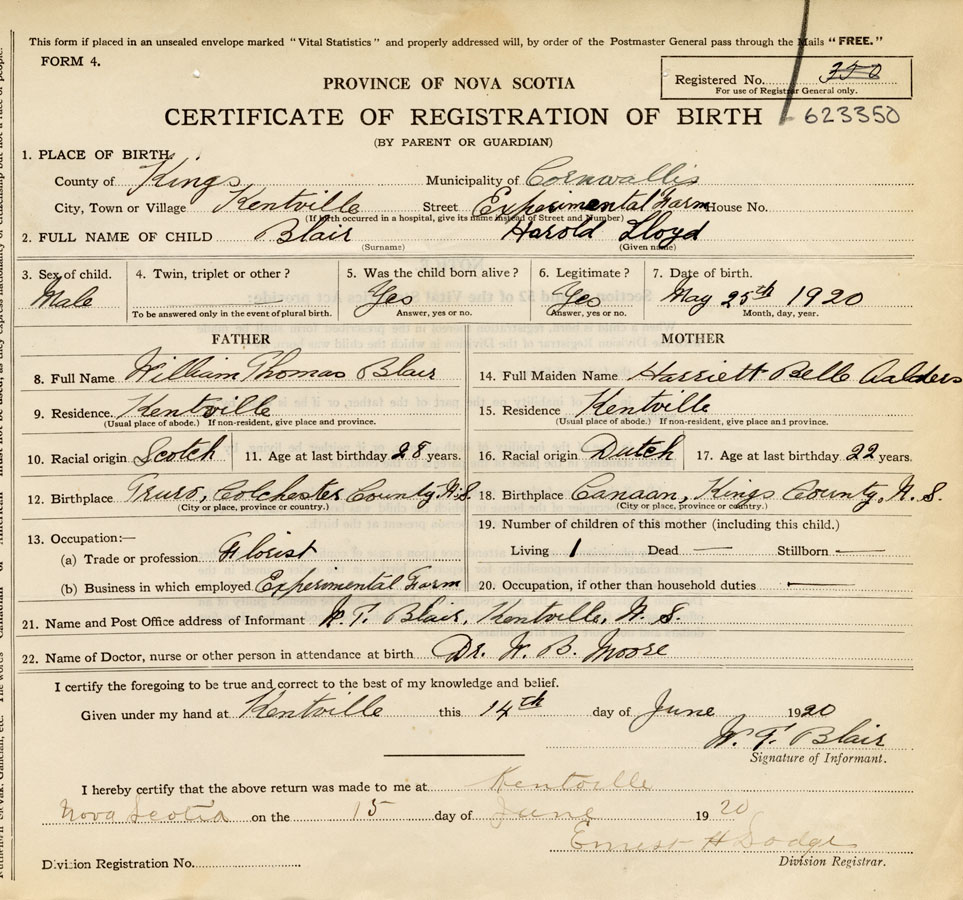 This form if placed in an unsealed envelope marked "Vital Statistics" and properly addressed will, by order of the Postmaster General pass through the Mails "FREE."
FORM 4.
Registered No. 350
For use of Registrar General only.
PROVINCE OF NOVA SCOTIA
CERTIFICATE OF REGISTRATION OF BIRTH 623350
(BY PARENT OR GUARDIAN)
1. PLACE OF BIRTH.
County of Kings Municipality of Cornwallis
City, Town or Village Kentville Street Experimental Farm House No.
(If birth occurred in a hospital, give its name instead of Street and Number)
2. FULL NAME OF CHILD Blair Harold Lloyd
(Surname) (Given name)
3. Sex of child. 4. Twin, triplet or other? 5. Was the child born alive? 6. Legitimate? 7. Date of birth.
Male Yes Yes May 25th 1920
To be answered only in the event of plural birth. Answer, yes or no. Answer, yes or no. Month, day, year.
FATHER MOTHER
8. Full Name William Thomas Blair 14. Full Maiden Name Harriett Belle Aalders
9. Residence. Kentville 15. Residence Kentville
(Usual place of abode.) If non-resident, give place and province. (Usual place of abode.) If non-resident, give place and province.
10. Racial origin Scotch 11. Age at last birthday 28 years. 16. Racial origin Dutch 17. Age at last birthday 22 years.
12. Birthplace Truro, Colchester County N.S. 18. Birthplace Canaan, Kings County, N.S.
(City or place, province or country.) (City or place, province or country.)
13. Occupation:— 19. Number of children of this mother (including this child.)
(a) Trade or profession Florist Living 1 Dead — Stillborn —
(b) Business in which employed Experimental Farm 20. Occupation, if other than household duties —
21. Name and Post Office address of Informant W. T. Blair, Kentville, N. S.
22. Name of Doctor, nurse or other person in attendance at birth Dr. W. B. Moore
I certify the foregoing to be true and correct to the best of my knowledge and belief.
Given under my hand at Kentville this 14th day of June 1920
W. T. Blair
Signature of Informant.
I hereby certify that the above return was made to me at Kentville
Nova Scotia on the 15 day of June 1920
Ernest H Dodge
Division Registration No. Division Registrar.